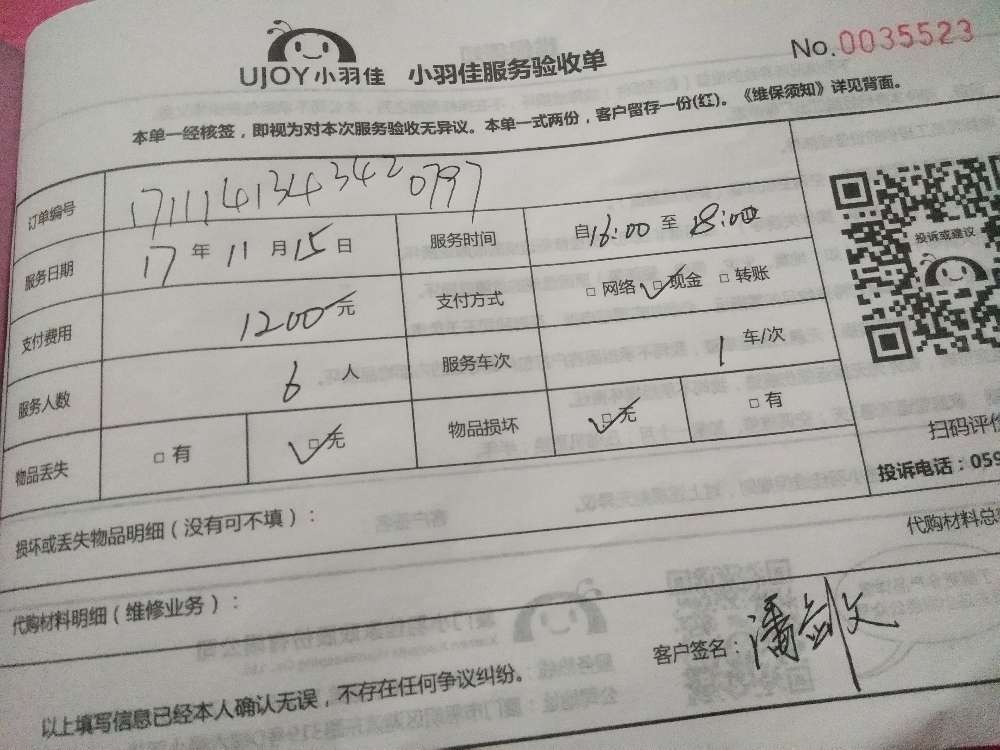 UJOY小羽佳 小羽佳服务验收单
No.0035523
本单一经核签，即视为对本次服务验收无异议。本单一式两份，客户留存一份(红)。《维保须知》详见背面。
订单编号 171114134342 0797
服务日期 17 年 11 月 15 日 服务时间 自16:00 至 18:00
支付费用 1200元 支付方式 □ 网络 □ 现金 □ 转账
服务人数 6 人 服务车次 1 车/次
物品丢失 □ 有 □ 无 物品损坏 □ 无 □ 有
投诉或建议
扫码评价
投诉电话：059
损坏或丢失物品明细（没有可不填）：
代购材料总
代购材料明细（维修业务）：
客户签名：潘剑文
以上填写信息已经本人确认无误，不存在任何争议纠纷。